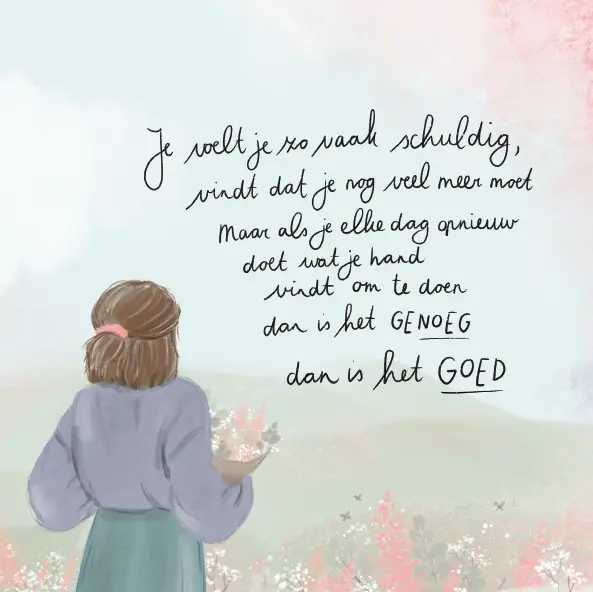 Je voelt je zo vaak schuldig,
vindt dat je nog veel meer moet
Maar als je elke dag opnieuw
doet wat je hand
vindt om te doen
dan is het GENOEG
dan is het GOED